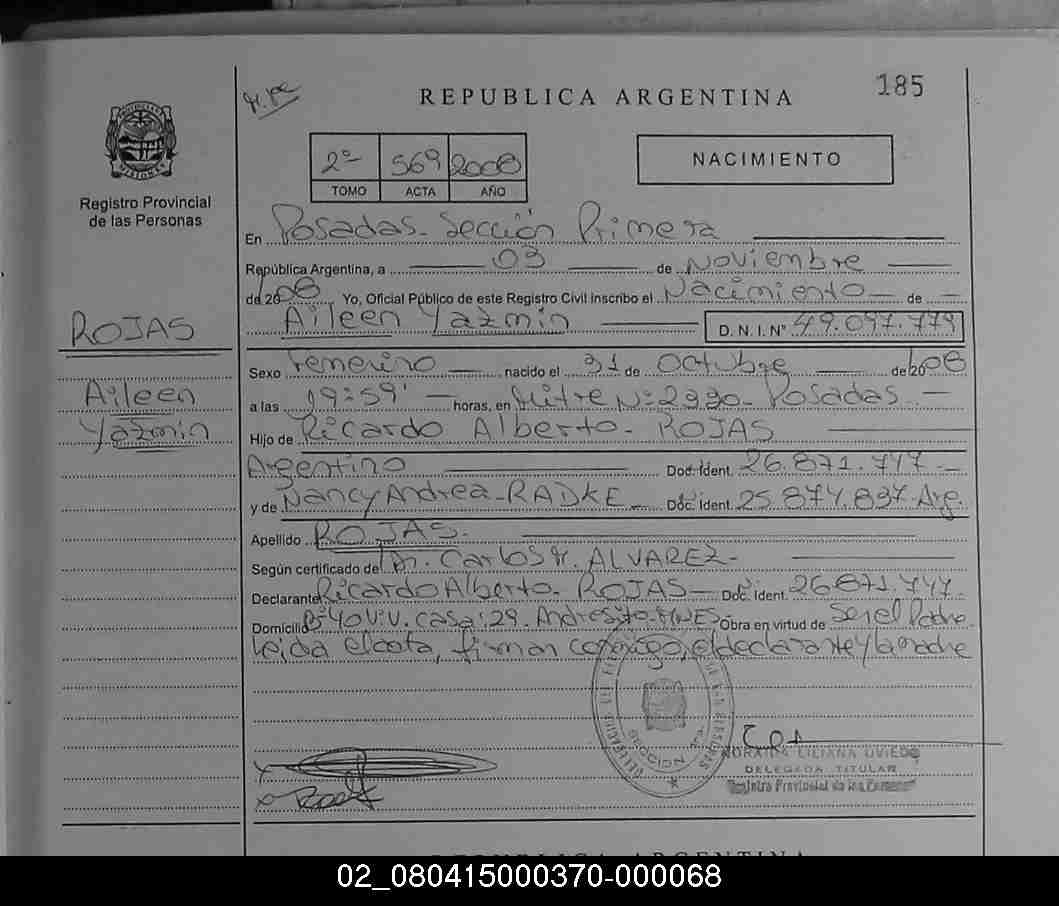 185
REPUBLICA ARGENTINA
2º 569 2008
TOMO ACTA AÑO
NACIMIENTO
Registro Provincial
de las Personas
En Posadas - Sección Primera
República Argentina, a 03 de Noviembre
de 2008 Yo, Oficial Público de este Registro Civil inscribo el Nacimiento de
Aileen Yazmin D.N.I.Nº 49.097.779
ROJAS
Aileen
Yazmin
Sexo Femenino nacido el 31 de Octubre de 2008
a las 19:59' horas, en Mitre Nº 2990 - Posadas
Hijo de Ricardo Alberto - ROJAS
Argentino Doc. Ident. 26.871.747
y de Nancy Andrea - RADKE Doc. Ident. 25.874.897 Arg.
Apellido ROJAS.
Según certificado de Dr. Carlos ALVAREZ -
Declarante Ricardo Alberto - ROJAS Doc. Ident. 26.871.747
Domicilio 40 Viv. Casa: 29. Andresito - MNES Obra en virtud de Ser el Padre
Leida el acta, firman conmigo, el declarante y la madre
LILIANA OVIEDO
DELEGADA TITULAR
Registro Provincial de las Personas
02_080415000370-000068